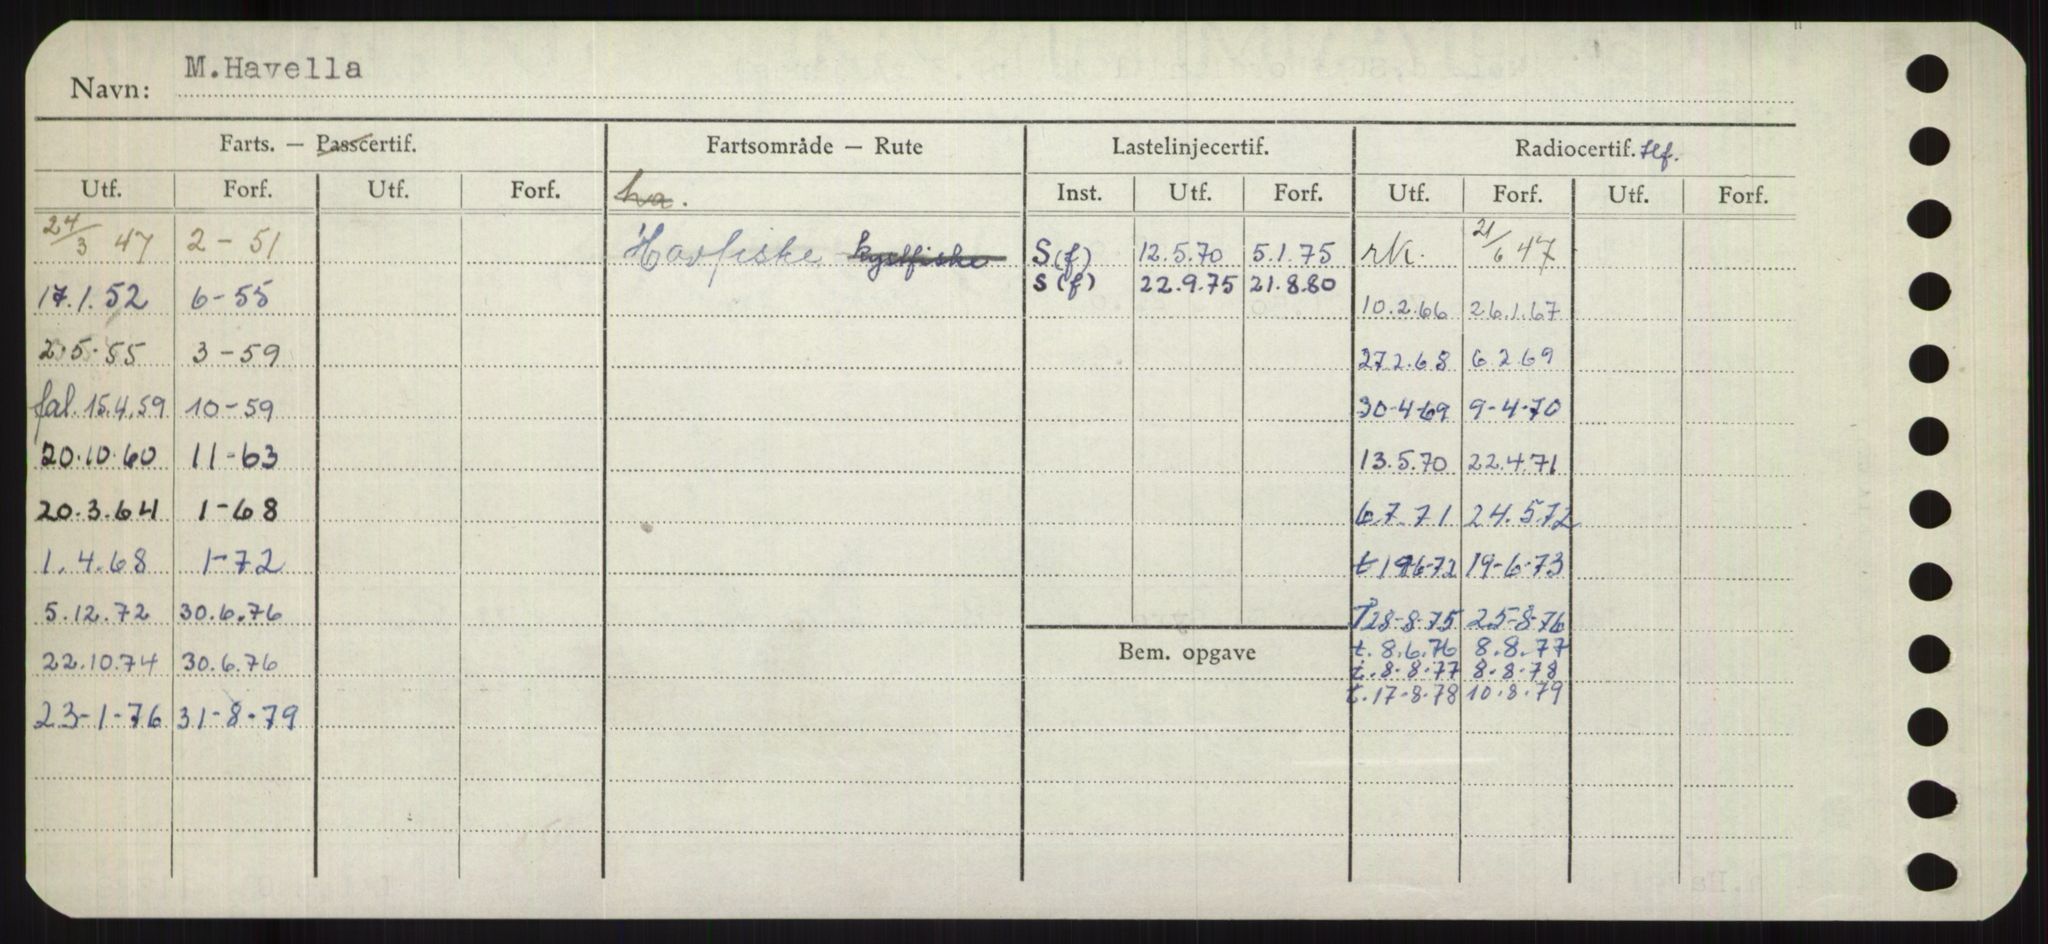 Navn: M.Havella
Farts. — Passcertif. Fartsområde — Rute Lastelinjecertif. Radiocertif. tlf.
Utf. Forf. Utf. Forf. ha. Inst. Utf. Forf. Utf. Forf. Utf. Forf.
24/3 47 2-51 Havfiske kystfiske S(f) 12.5.70 5.1.75 rk. 21/6 47
S(f) 22.9.75 21.8.80
17.1.52 6-55 10.2.66 26.1.67
2.5.55 3-59 27.2.68 6.2.69
fal. 15.4.59 10-59 30-4-69 9-4-70
20.10.60 11-63 13.5.70 22.4.71
20.3.64 1-68 6.7.71 24.5.72
1.4.68 1-72 t 19-6-72 19-6-73
5.12.72 30.6.76 T 28-8-75 25-8-76
22.10.74 30.6.76 Bem. opgave t. 8.6.76 8.8.77
t. 8-8-77 8-8-78
t. 17-8-78 10.8.79
23-1-76 31-8-79